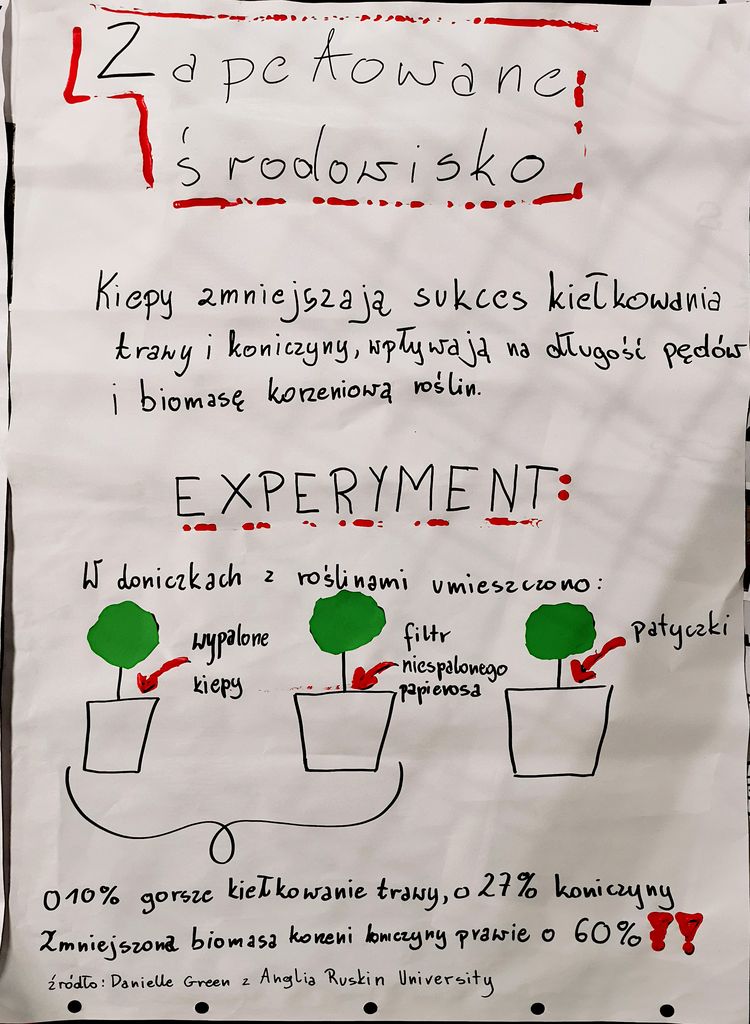 Zapetowane
środowisko
Kiepy zmniejszają sukces kiełkowania
trawy i koniczyny, wpływają na długość pędów
i biomasę korzeniową roślin.
EXPERYMENT:
W doniczkach z roślinami umieszczono:
wypalone
kiepy
filtr
niespalonego
papierosa
patyczki
O 10% gorsze kiełkowanie trawy, o 27% koniczyny
Zmniejszona biomasa korzeni koniczyny prawie o 60% !!
źródło: Danielle Green z Anglia Ruskin University